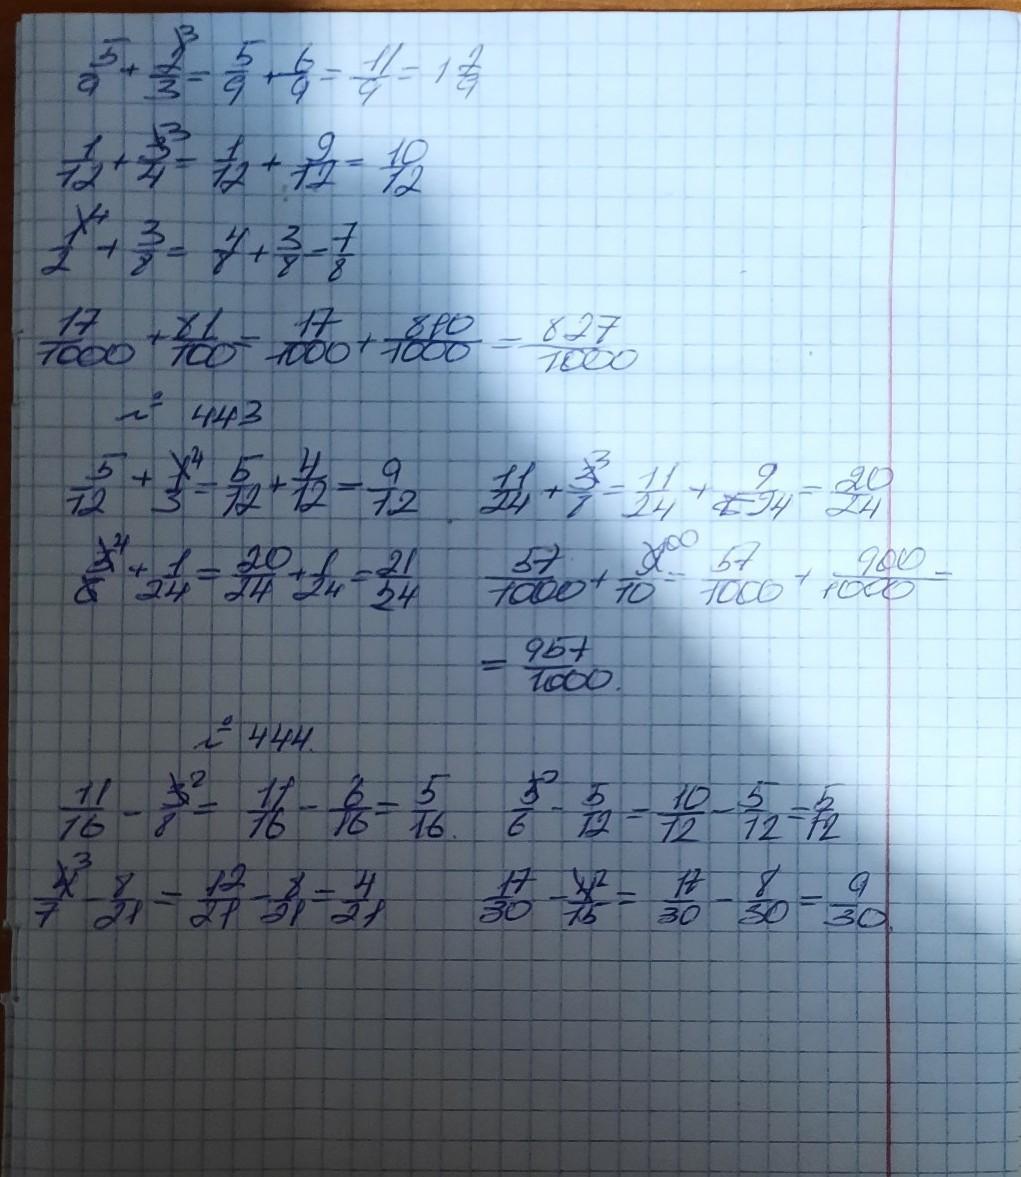 5/9 + 2/3 ³ = 5/9 + 6/9 = 11/9 = 1 2/9
1/12 + 3/4 ³ = 1/12 + 9/12 = 10/12
1/2 ⁴ + 3/8 = 4/8 + 3/8 = 7/8
17/1000 + 81/100 = 17/1000 + 810/1000 = 827/1000
№ 443
5/12 + 1/3 ⁴ = 5/12 + 4/12 = 9/12 11/24 + 3/8 ³ = 11/24 + 9/24 = 20/24
5/6 ⁴ + 1/24 = 20/24 + 1/24 = 21/24 57/1000 + 9/10 ¹⁰⁰ = 57/1000 + 900/1000 =
= 957/1000.
№ 444.
11/16 - 3/8 ² = 11/16 - 6/16 = 5/16. 5/6 - 5/12 = 10/12 - 5/12 = 5/12
4/7 ³ - 8/21 = 12/21 - 8/21 = 4/21 17/30 - 4/15 ² = 17/30 - 8/30 = 9/30.